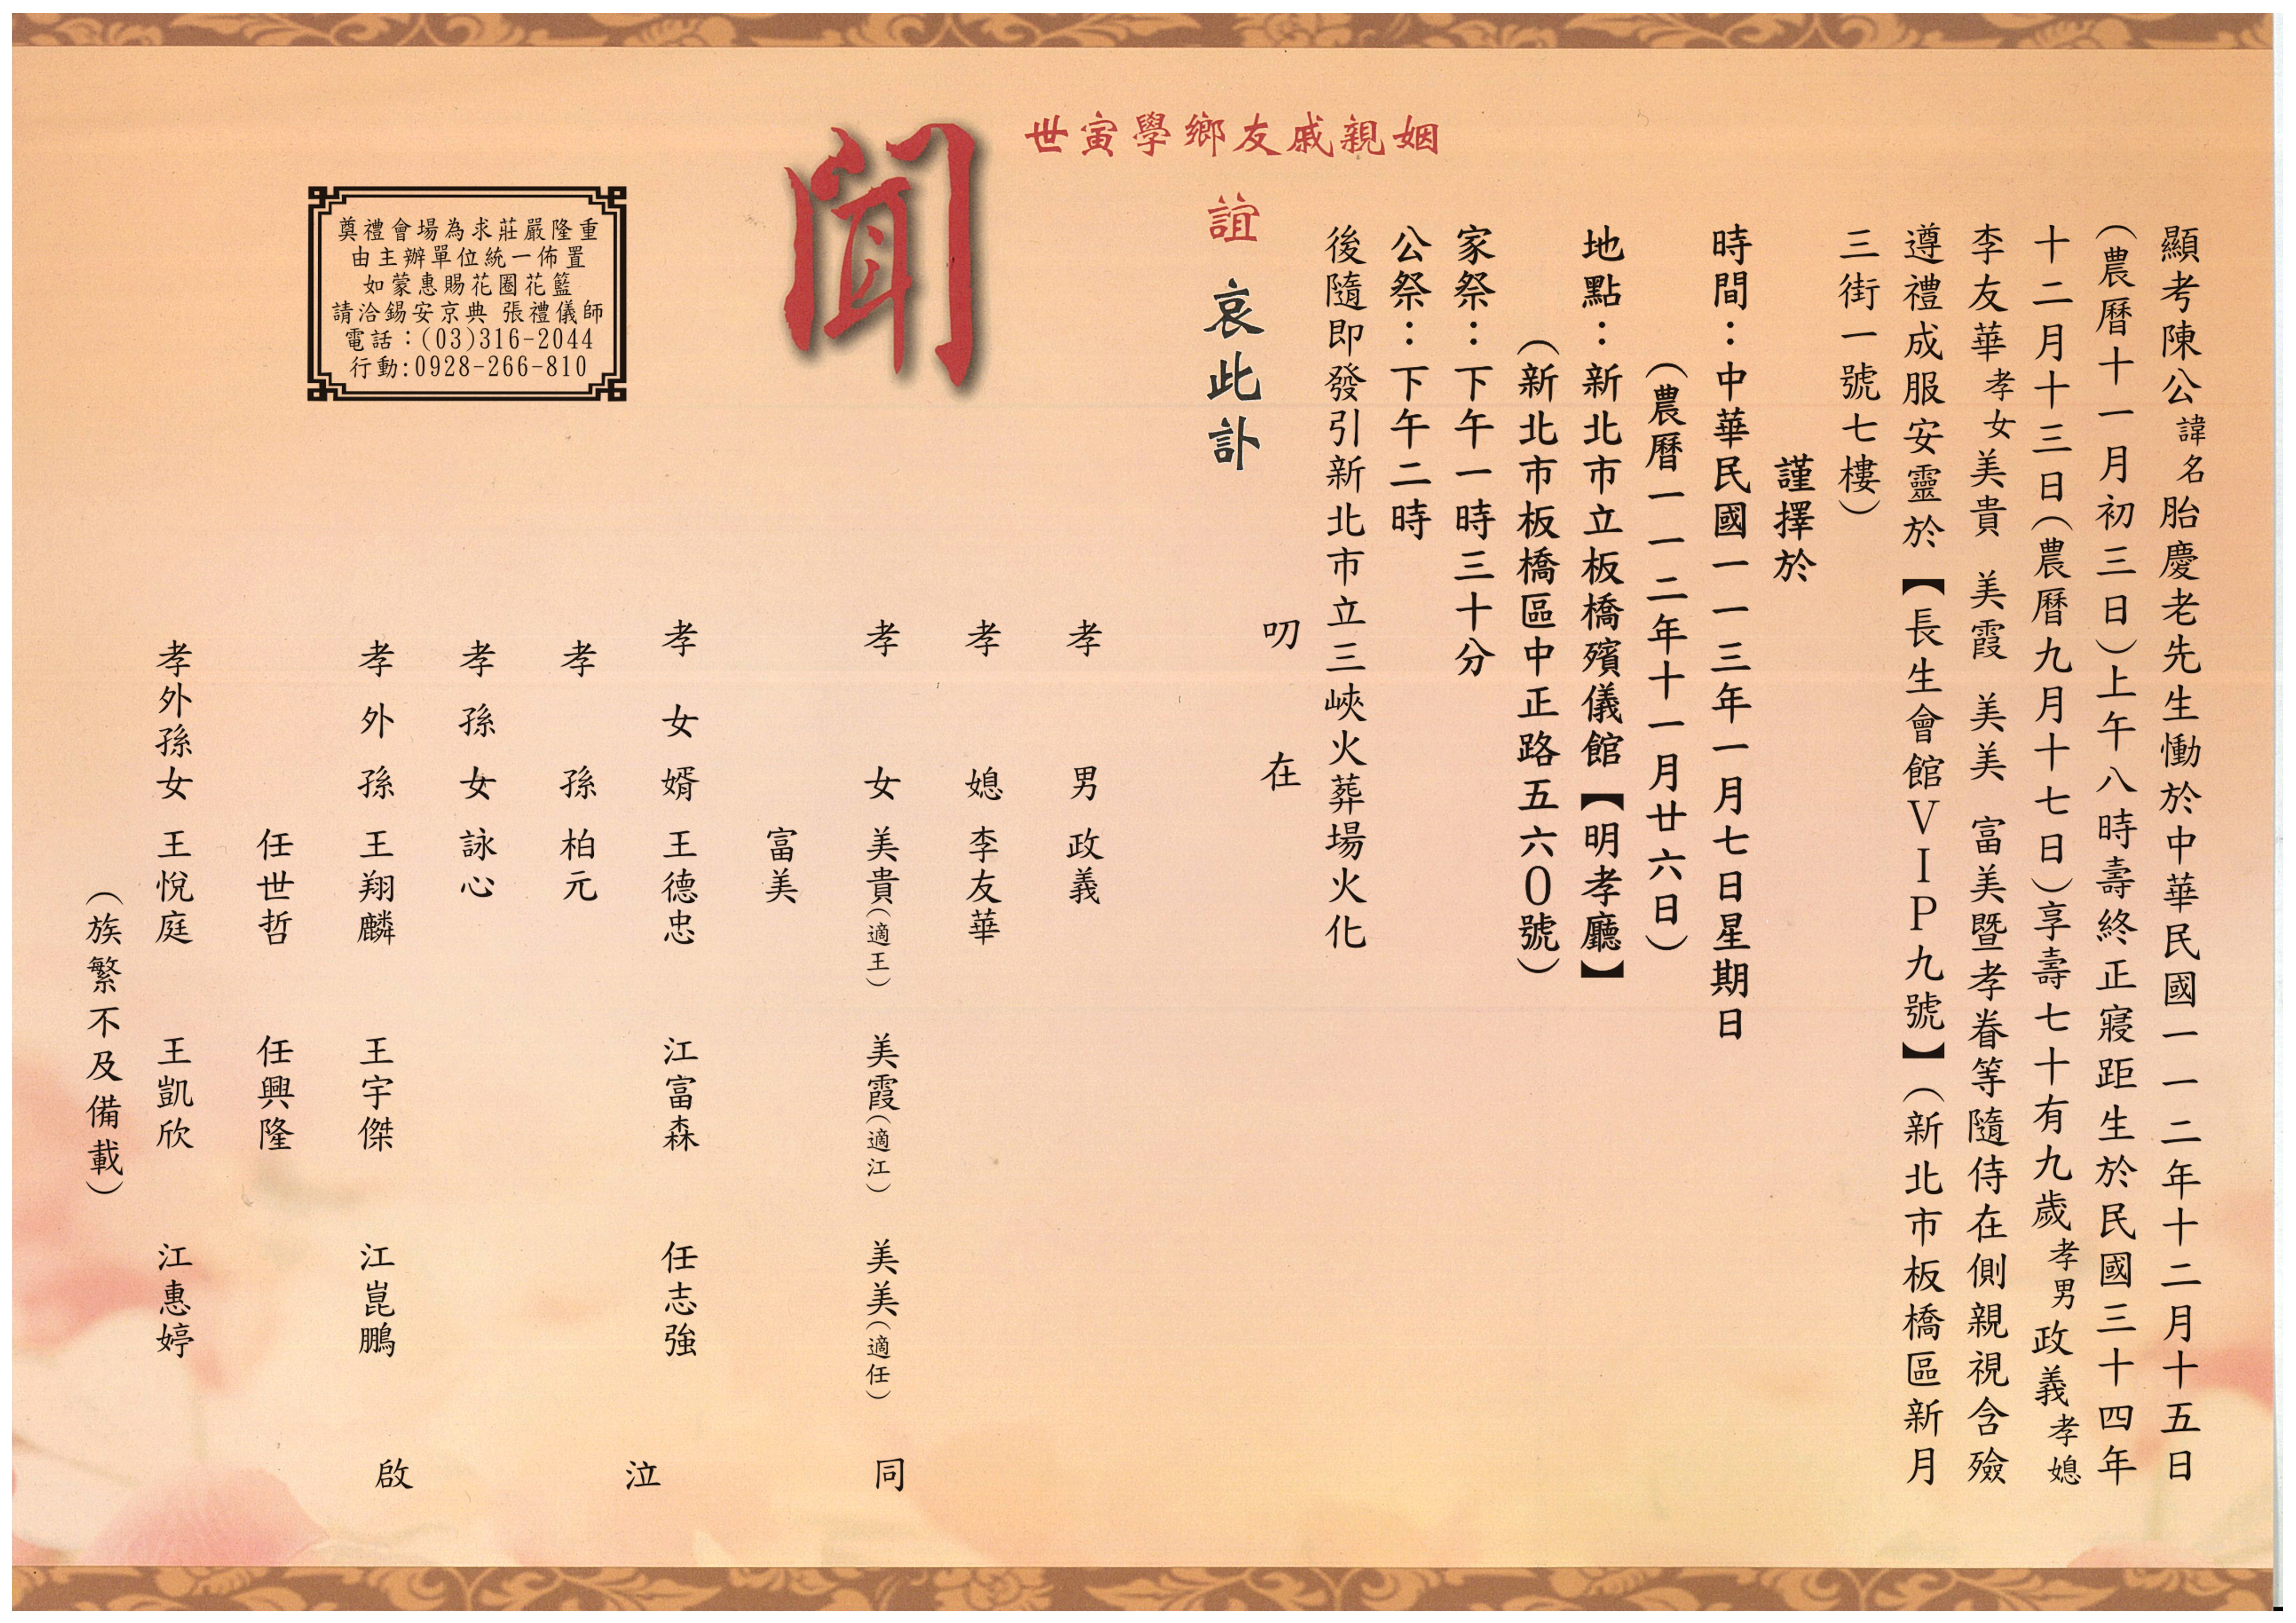 顯考陳公諱名胎慶老先生慟於中華民國一一二年十二月十五日
（農曆十一月初三日）上午八時壽終正寢距生於民國三十四年
十二月十三日（農曆九月十七日）享壽七十有九歲孝男政義孝媳
李友華孝女美貴 美霞 美美 富美暨孝眷等隨侍在側親視含殮
遵禮成服安靈於【長生會館VIP九號】（新北市板橋區新月
三街一號七樓）
謹擇於
時間：中華民國一一三年一月七日星期日
（農曆一一二年十一月廿六日）
地點：新北市立板橋殯儀館【明孝廳】
（新北市板橋區中正路五六0號）
家祭：下午一時三十分
公祭：下午二時
後隨即發引新北市立三峽火葬場火化
叨 在
姻親戚友鄉學寅世
誼 哀此訃
聞
孝男 政義
孝媳 李友華
孝女 美貴（適王） 美霞（適江） 美美（適任）
富美
孝女婿 王德忠 江富森 任志強
孝孫 柏元
孝孫女 詠心
孝外孫 王翔麟 王宇傑 江崑鵬
任世哲 任興隆
孝外孫女 王悅庭 王凱欣 江惠婷
同 泣 啟
（族繁不及備載）
奠禮會場為求莊嚴隆重
由主辦單位統一佈置
如蒙惠賜花圈花籃
請洽錫安京典 張禮儀師
電話：(03)316-2044
行動:0928-266-810